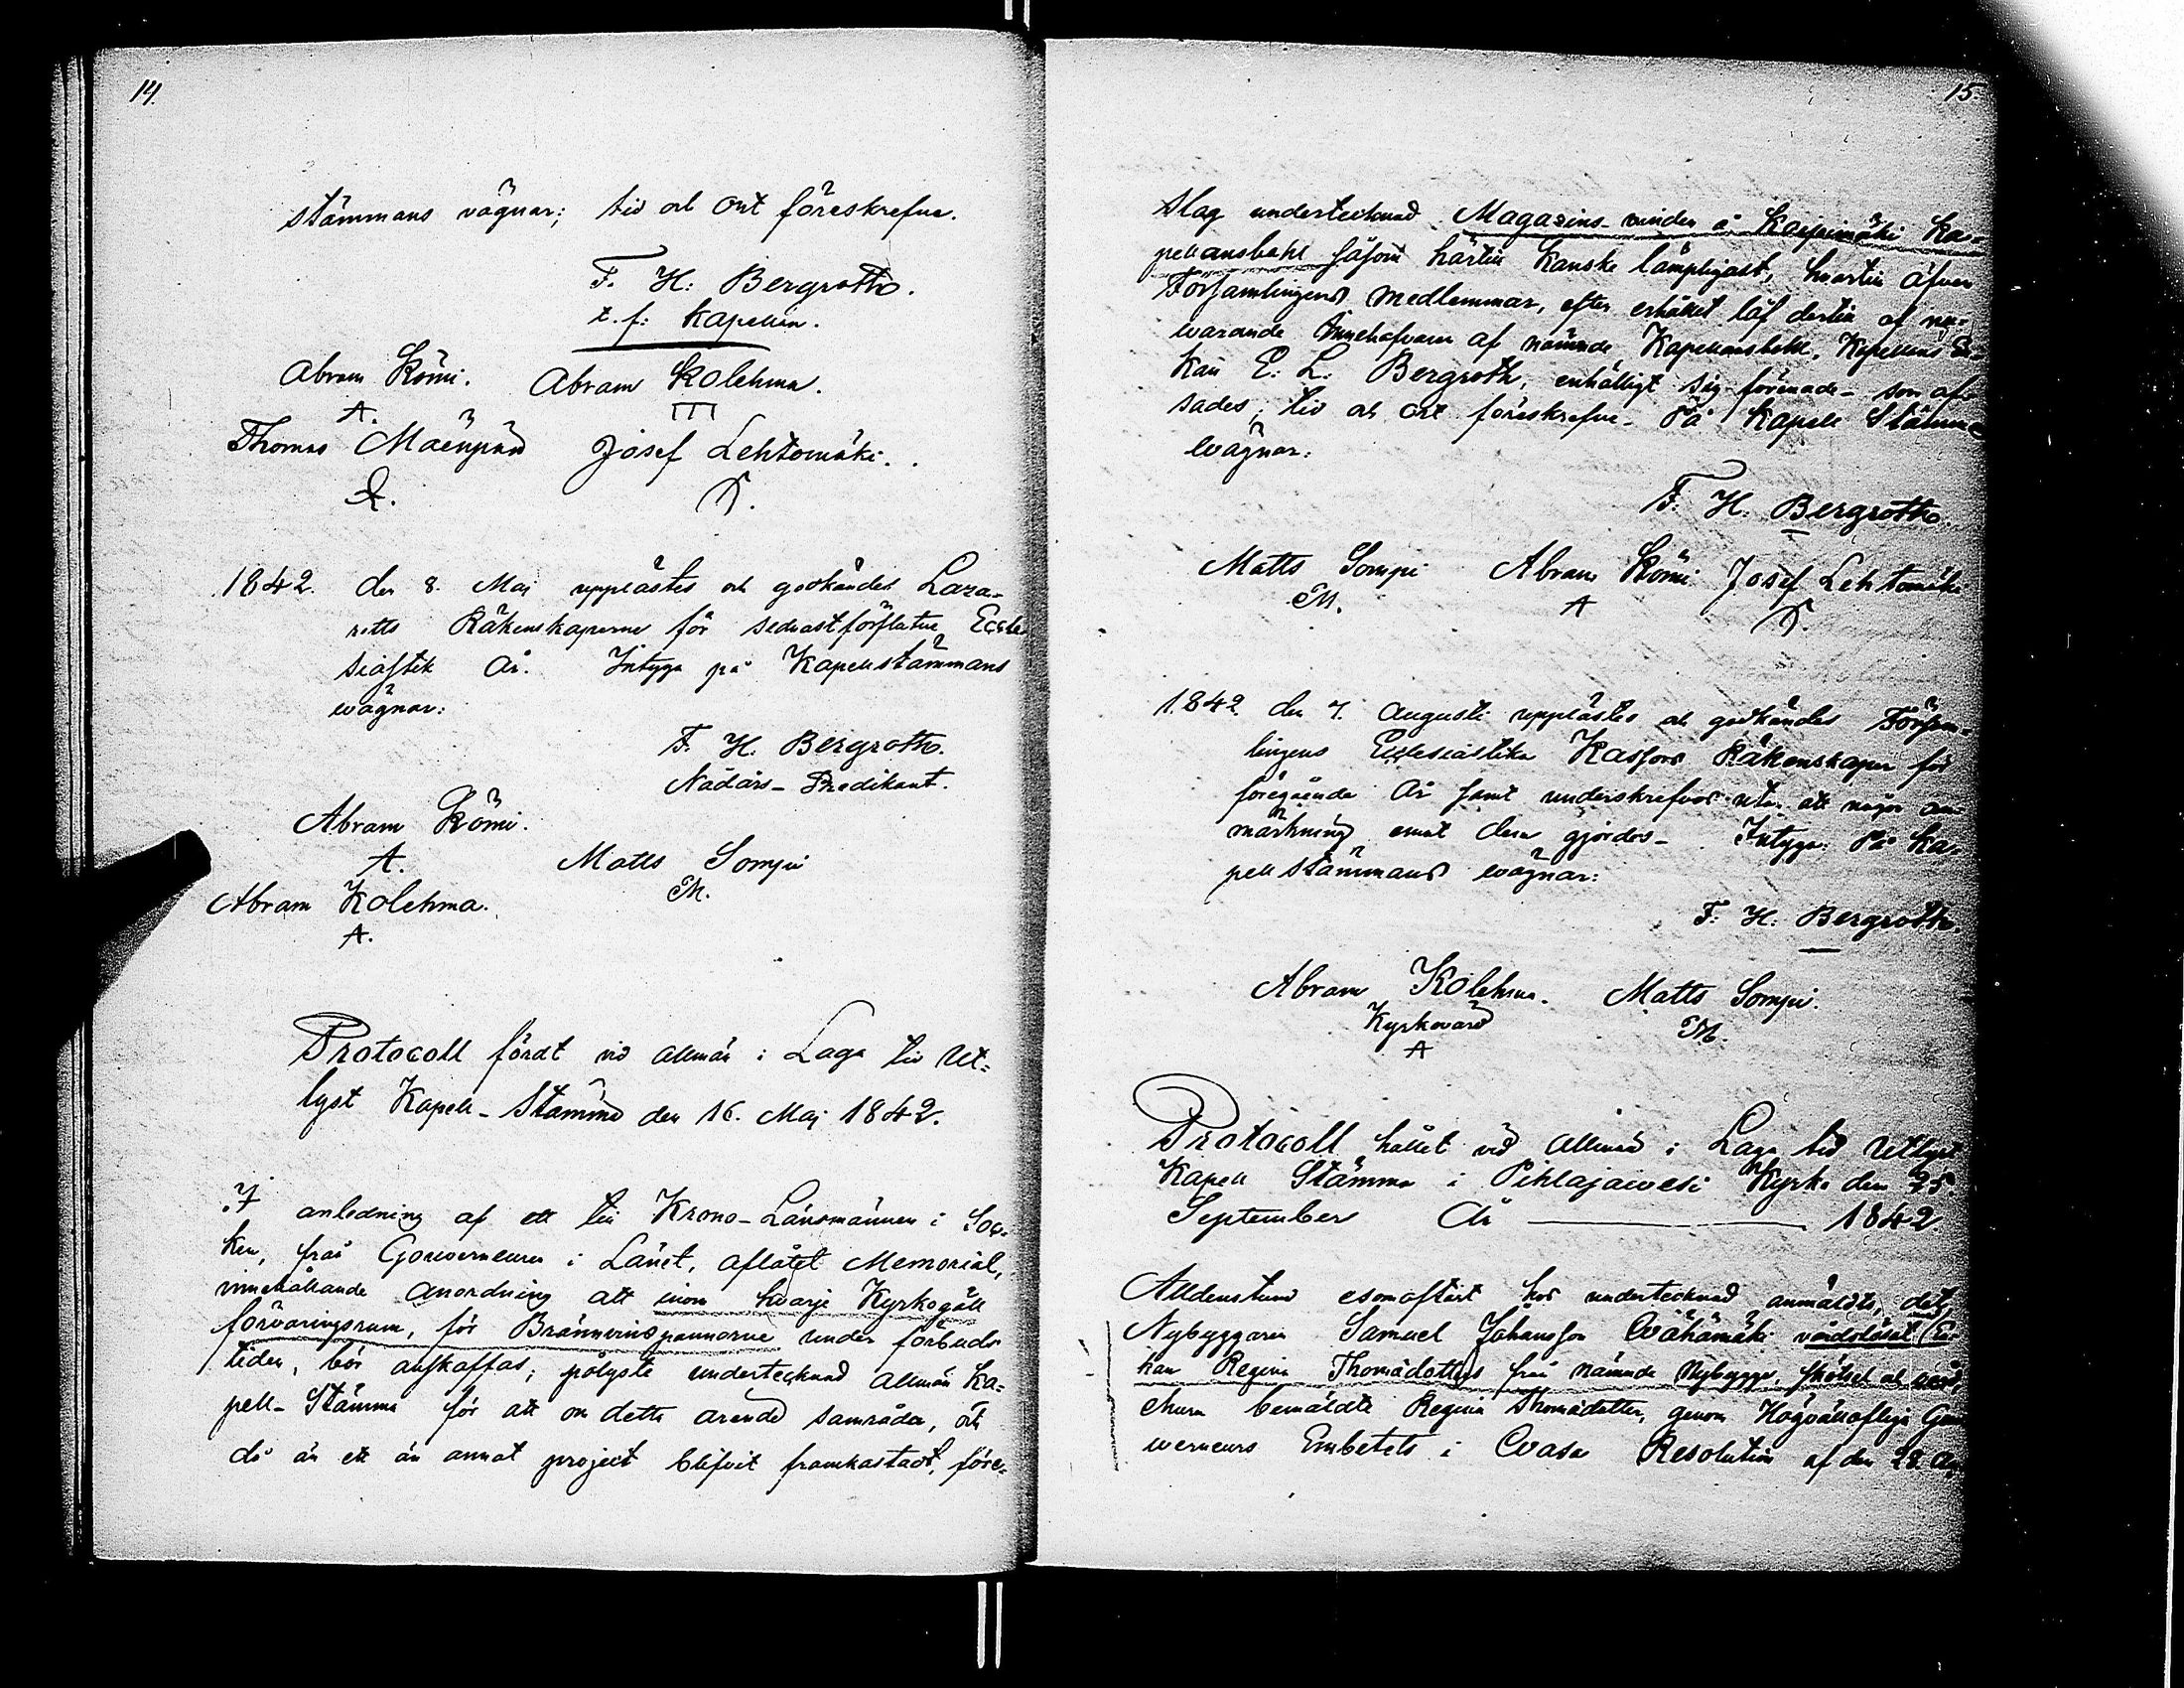 14.
stämmans vägnar; tid och ort föreskrefne.
F. H: Bergroth.
t. f: Kapellan.
Abram Römi. Abram Kolehma.
A. III
Thomas Mäenpää Josef Lehtomäki.
1842. den 8. Maj upplästes och godkändes Laza-
retts Räkenskaperne för sednast förflutne Eccle
siastik År. Intyga på Kapellstämmans
wägnar:
F. H. Bergroth.
Nådårs-Predikant.
Abram Römi.
A. Matts Sompi
Abram Kolehma. M.
A.
Protocoll fördt vid allmän i Laga tid Ut-
lyst Kapell-Stämma den 16. Maj 1842.
I anledning af ett till Krono-Länsmannen i Soc-
ken, från Gouverneuren i Länet, aflåtet Memorial,
innehållande anordning att inom hvarje Kyrkogäll
förvaringsrum, för Bränvinspannorne under förbuds
tiden, bör anskaffas; pålyste undertecknad allmän Ka-
pell-Stämma för att om detta ärende samråda, och
då än ett än annat project blifvit framkastadt, före-
15.
slag undertecknad Magazins-vinden å Kaipimäki Ka-
pellansbohl såsom härtill kanske lämpligast, hvartill äfven
Församlingens medlemmar, efter erhållet löf dertill af nu-
warande Innehafvaren af nämnde Kapellansbohl, Kapellans En-
kan E. L. Bergroth, enhälligt sig förenade - som af-
sades, tid och ort föreskrefne - På Kapell Stämmans
wägnar:
F. H. Bergroth.
Matts Sompi Abram Römi Josef Lehtomäki
M. A
1842. den 7. Augusti upplästes och godkändes Försam-
lingens Ecclesiastika Kassors Räkenskaper för
föregående År samt underskrefvos utan att någon an-
märkning emot dem gjordes - Intyga På Ka-
pell stämmans wägnar:
F. H. Bergroth.
Abram Kolehma. Matts Sompi.
Kyrkovärd M.
A
Protocoll hållet vid allmän i Laga tid Utlyst
Kapell Stämma i Pihlajawesi Kyrka den 25.
September År 1842.
Alldenstund esomoftast hos undertecknad anmäldts, det
Nybyggaren Samuel Johansson Wähämäki vårdslösat En-
kan Regina Thomædotters från nämnde Nybygge, skötsel och vård,
ehuru bemäldte Regina Thomædotter, genom Högvällofliga Gou
werneurs Embetets i Wasa Resolution af den 28